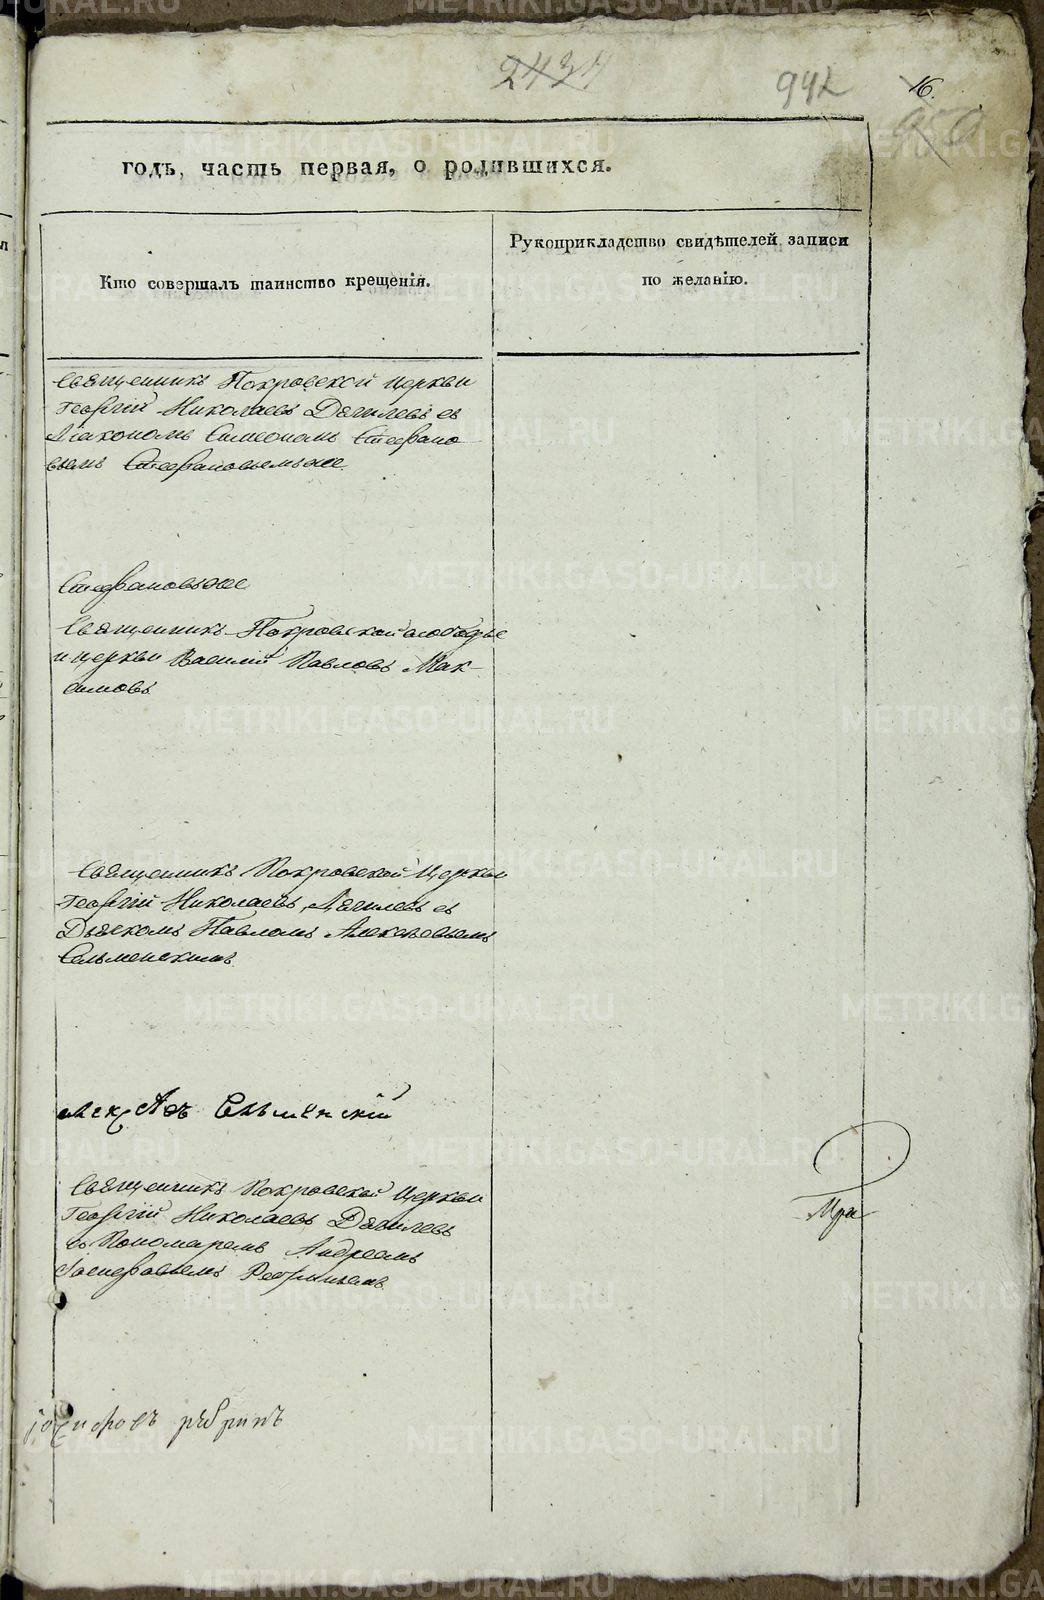 2434
942
16.
950
годъ, часть первая, о родившихся.
Кто совершалъ таинство крещенія.
Рукоприкладство свидѣтелей записи
по желанію.
Священникъ Покровской церкви
Георгій Николаевъ Дягилевъ съ
Діакономъ Симеономъ Стефано
вымъ Стефановымъ же
Стефановъ же
Священникъ Покровской слободы
и церкви Василій Павловъ Мак-
симовъ
Священникъ Покровской Церкви
Георгій Николаевъ Дягилевъ съ
Дьячкомъ Павломъ Алексѣевымъ
Сельменскимъ
Сельменскій
Священникъ Покровской Церкви
Георгій Николаевъ Дягилевъ
съ Пономаремъ Андреемъ
Іосифовымъ Ребринымъ
Іосифовъ рѣбринъ
METRIKI.GASO-URAL.RU